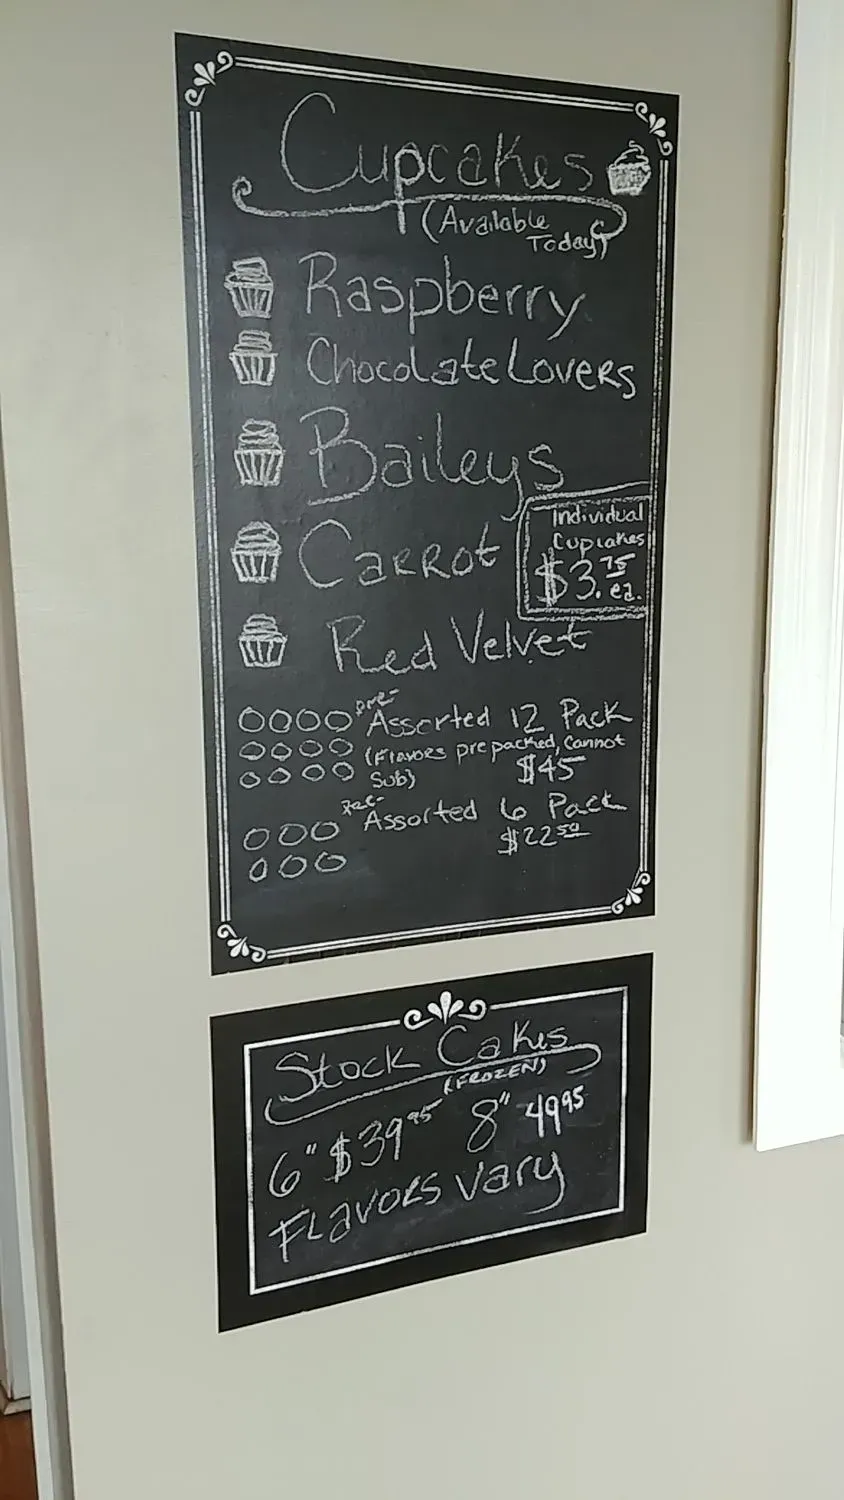 Cupcakes
(Available
Today)
Raspberry
Chocolate Lovers
Baileys
Carrot
Individual
Cupcakes
$3.75 ea.
Red Velvet
pre-
Assorted 12 Pack
(Flavors prepacked, Cannot
Sub) $45
pre-
Assorted 6 Pack
$22.50
Stock Cakes
(FROZEN)
6" $39.95 8" 49.95
Flavors vary